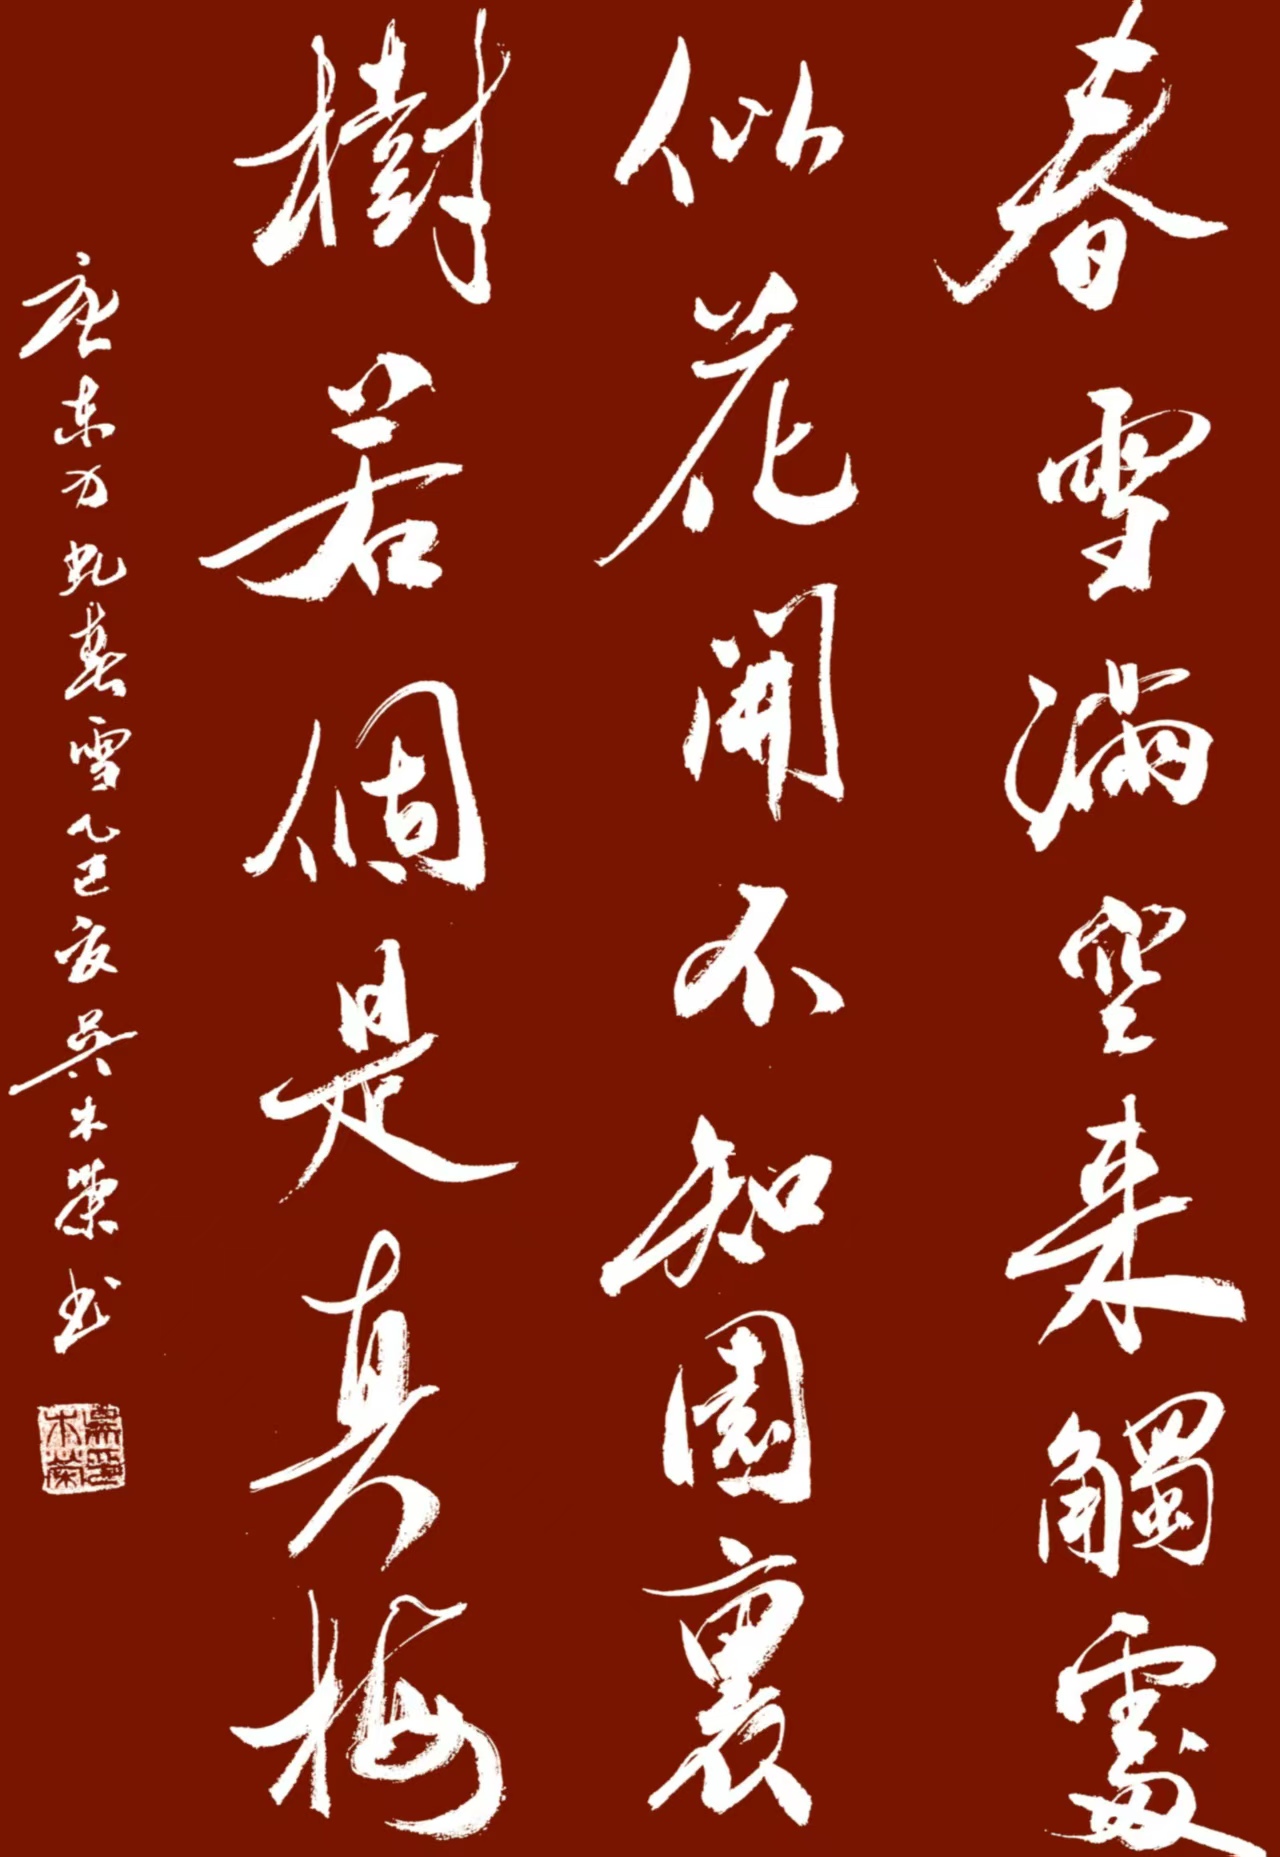 春雪滿空来觸處
似花開不知園裏
樹若個是真梅
唐东方虬春雪乙巳夏吴木荣书
吴印木荣